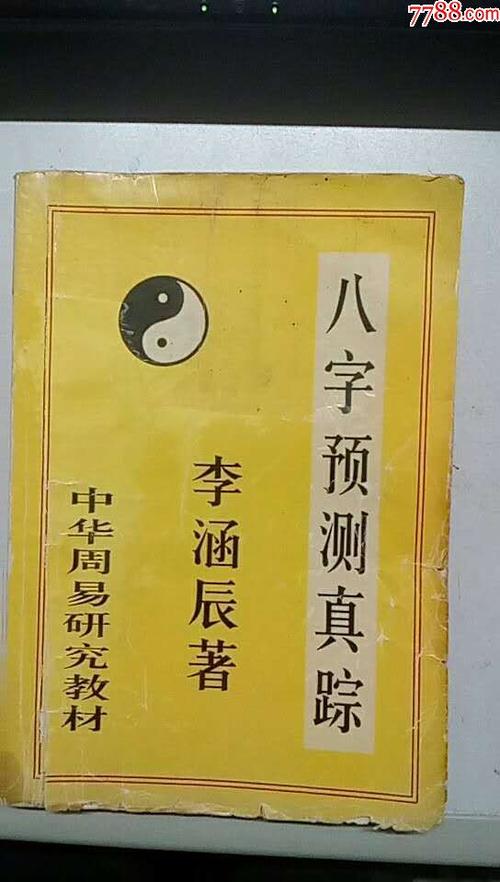 7788.com
八字预测真踪
李涵辰著
中华周易研究教材